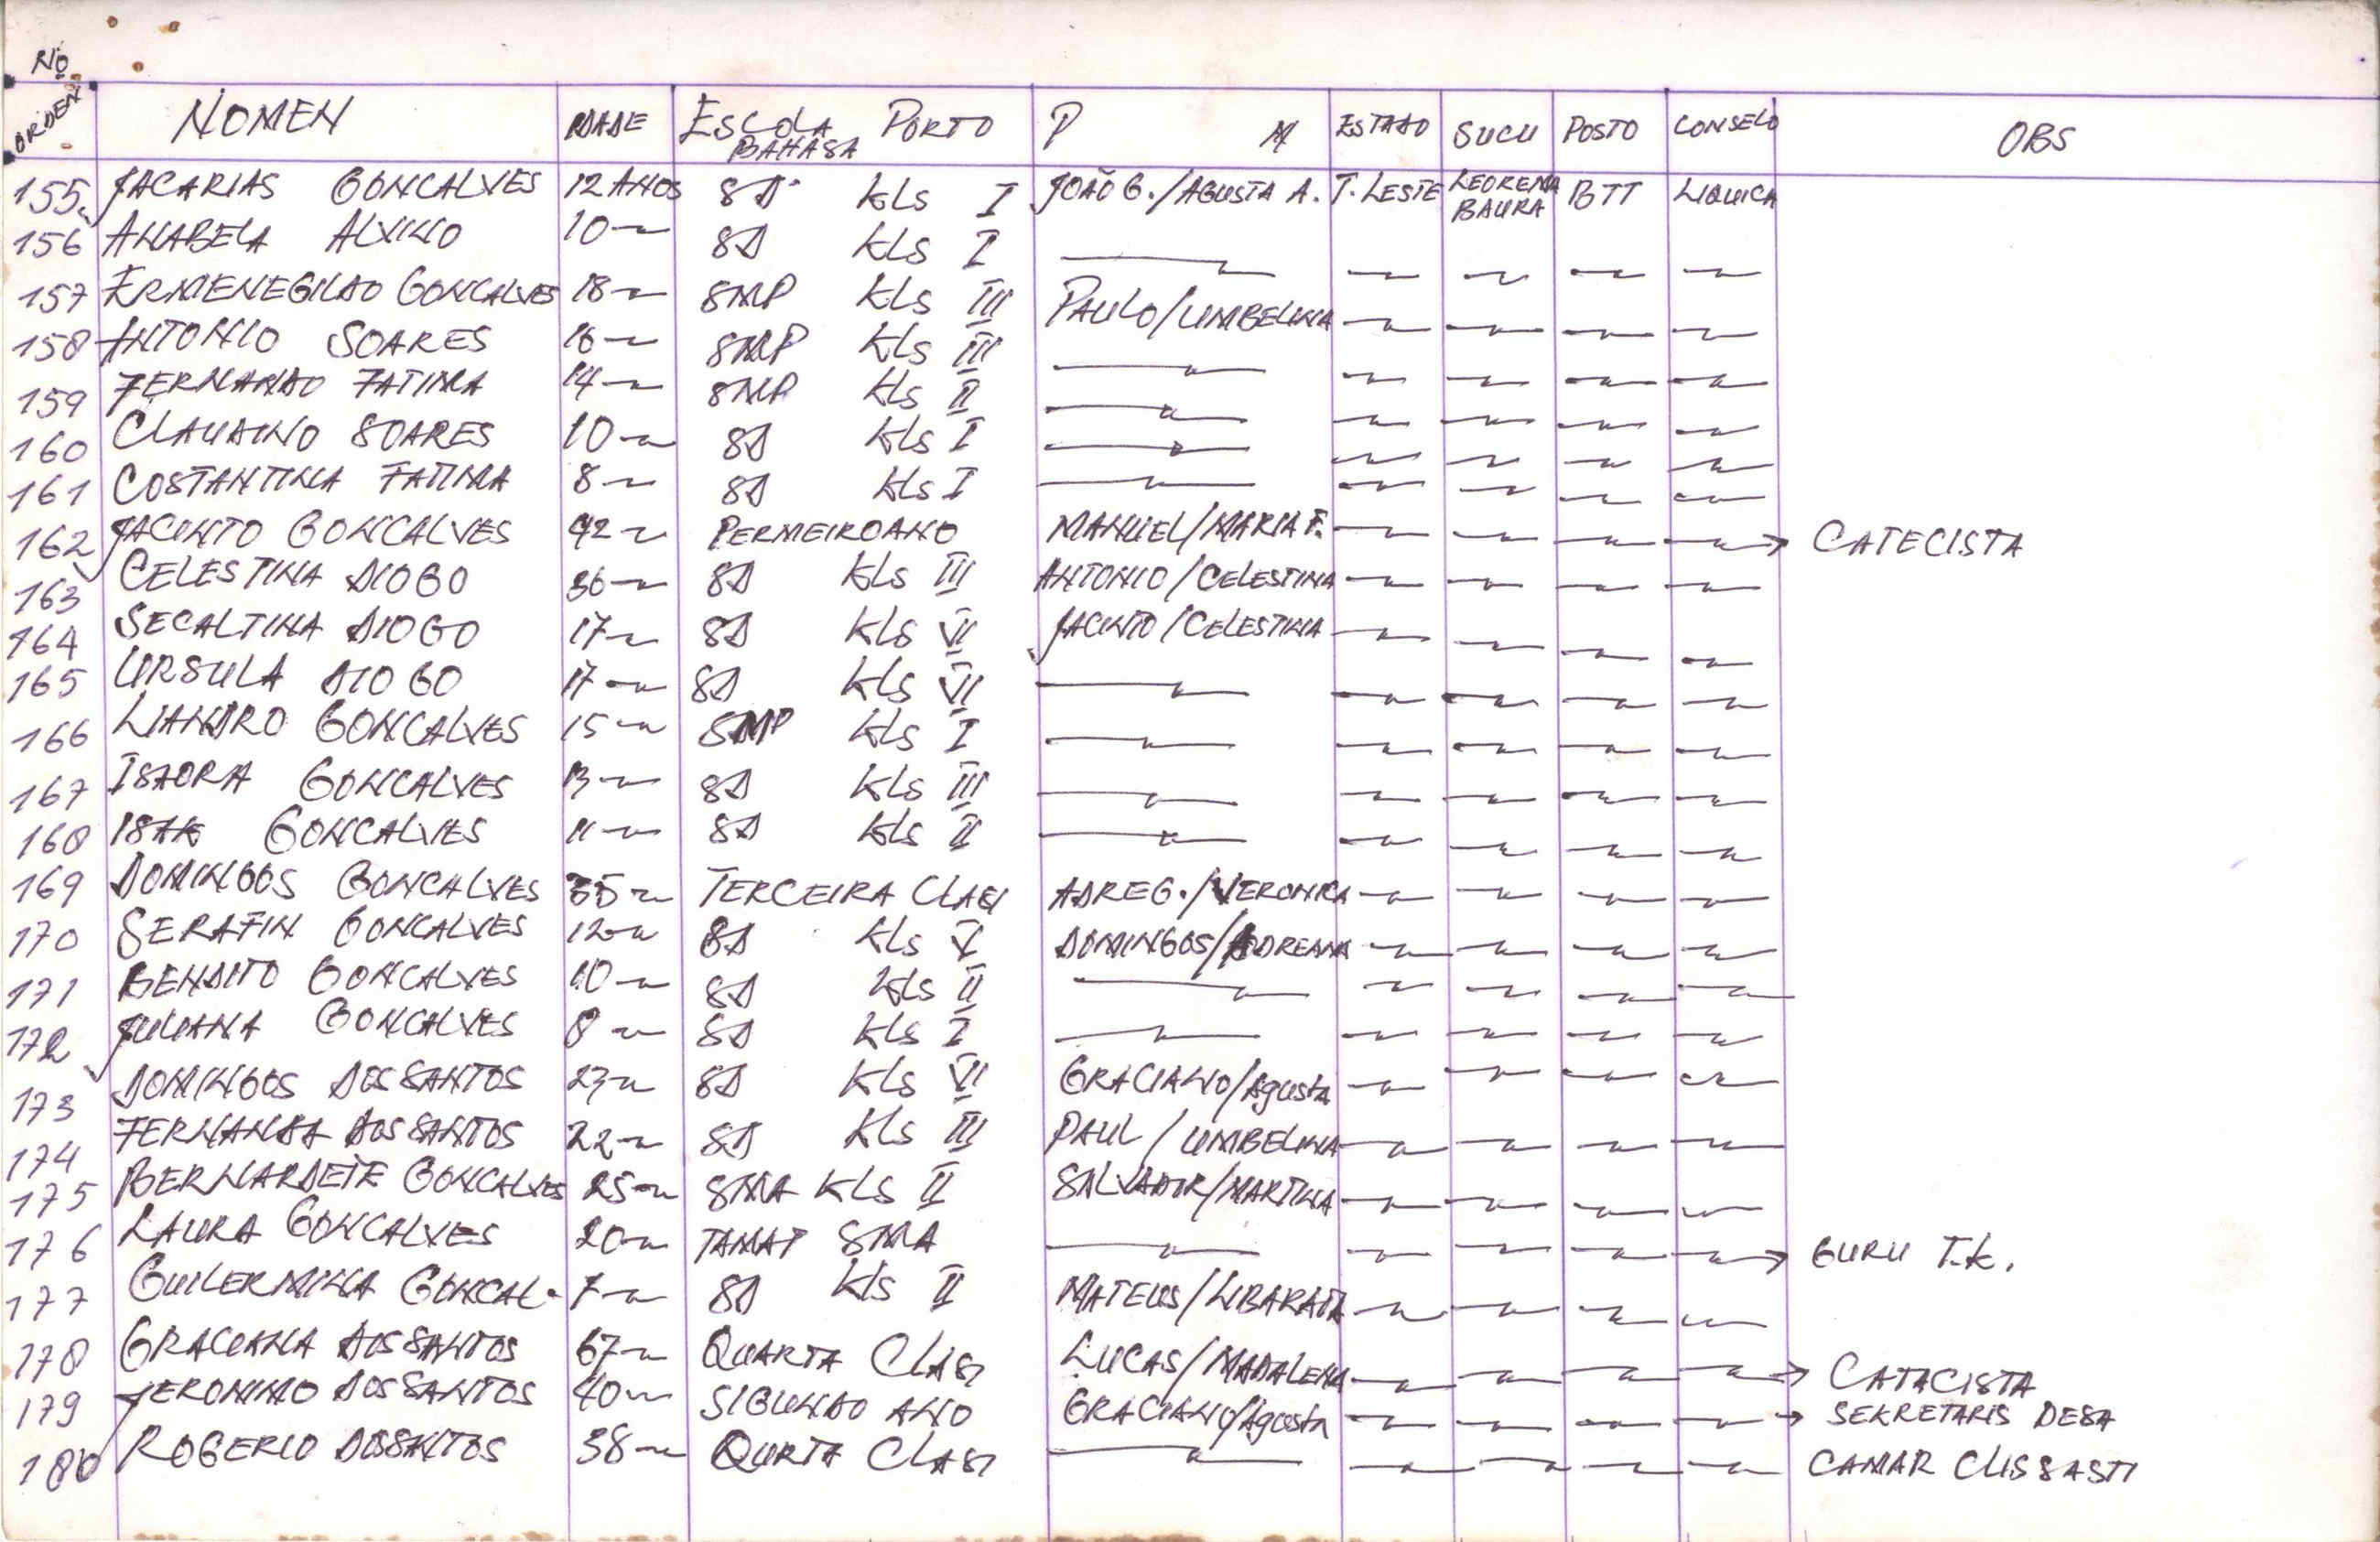 No ORDEN NOMEN IDADE ESCOLA BAHASA PORTO P M ESTADO SUCU POSTO CONSELO OBS
155 JACARIAS GONCALVES 12 ANOS SD KLS I JOÃO G./AGUSTA A. T. LESTE LEOREMA BAURA BTT LIQUICA
156 ANABELA ALVINO 10 SD KLS I
157 ERMENEGILDO GONCALVES 18 SMP KLS III PAULO/UMBELINA
158 ANTONIO SOARES 16 SMP KLS III
159 FERNANDO FATIMA 14 SMP KLS II
160 CLAUDINO SOARES 10 SD KLS I
161 COSTANTINA FATIMA 8 SD KLS I
162 JACINTO GONCALVES 42 PERMEIROANO MANUEL/MARIA F. CATECISTA
163 CELESTINA DIOGO 36 SD KLS III ANTONIO/CELESTINA
164 SECALTINA DIOGO 17 SD KLS VI JACINTO/CELESTINA
165 URSULA DIOGO 17 SD KLS VI
166 LIANDRO GONCALVES 15 SMP KLS I
167 ISDORA GONCALVES 13 SD KLS III
168 ISAK GONCALVES 11 SD KLS II
169 DOMINGOS GONCALVES 35 TERCEIRA CLASI ADREG./VERONICA
170 SERAFIN GONCALVES 12 SD KLS V DOMINGOS/ADREANA
171 BENDITO GONCALVES 10 SD KLS II
172 JULIANA GONCALVES 8 SD KLS I
173 DOMINGOS DOSSANTOS 23 SD KLS VI GRACIANO/Agusta
174 FERNANDA DOSSANTOS 22 SD KLS III PAUL/UMBELINA
175 BERNARDETE GONCALVES 25 SMA KLS II SALVADOR/MARTINA
176 LAURA GONCALVES 20 TAMAT SMA GURU T.K.
177 GUILERMINA GONCAL. 7 SD KLS II MATEUS/LIBARATA
178 GRACIANA DOSSANTOS 67 QUARTA CLASI LUCAS/MADALENA CATACISTA
179 JERONIMO DOSSANTOS 40 SIGUNDO ANO GRACIANO/Agusta SEKRETARIS DESA
180 ROGERIO DOSSANTOS 38 QURTA CLASI CAMAR CLISSASTI